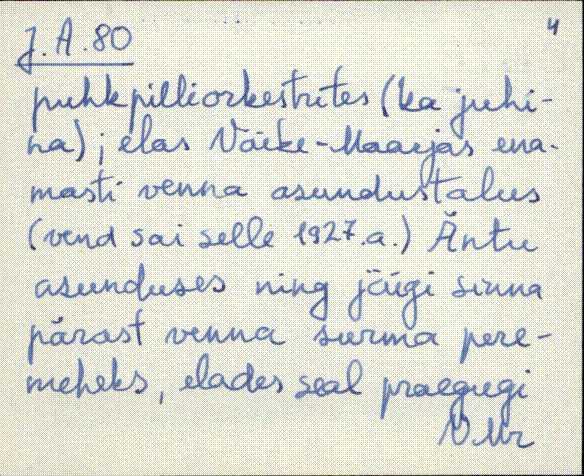 J.A.80
4
puhkpilliorkestrites (ka juhi-
na); elas Väike-Maarjas ena-
masti venna asundustalus
(vend sai selle 1927.a.) Äntu
asunduses ning jäigi sinna
pärast venna surma pere-
meheks, elades seal praegugi
V.Mr